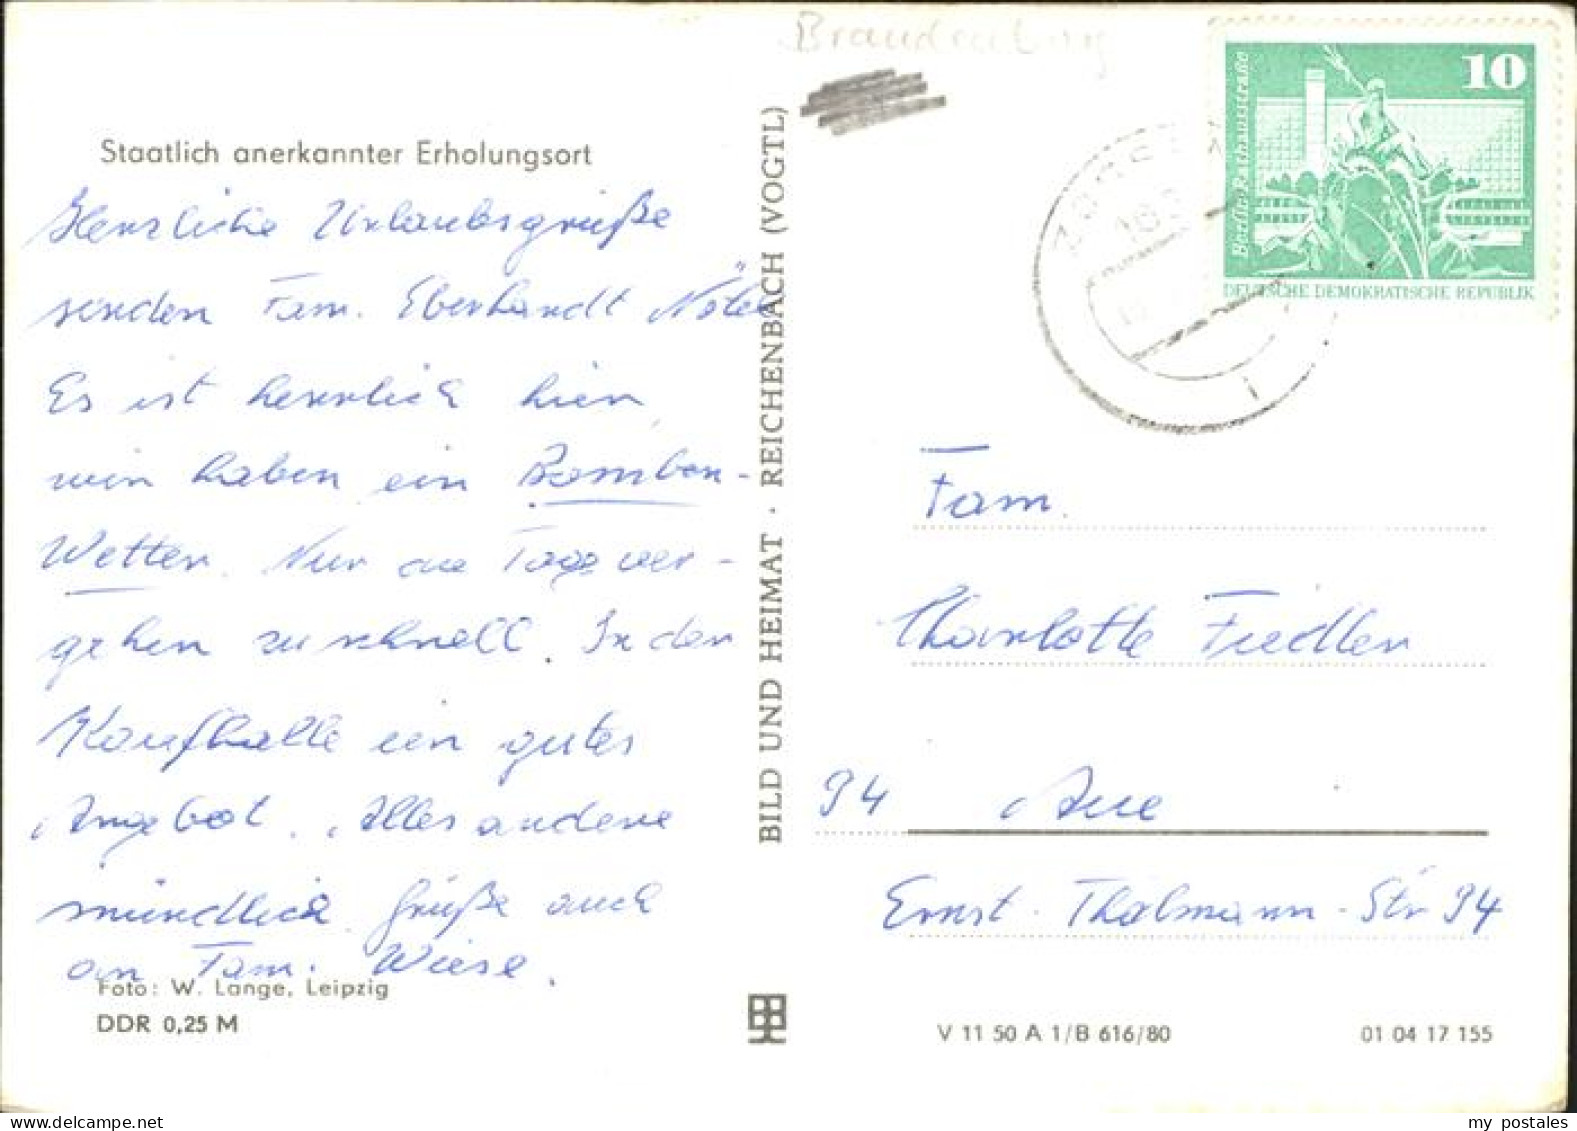 Brandenburg
Staatlich anerkannter Erholungsort
Herzliche Urlaubsgrüße
senden Fam. Eberhardt
Es ist herrlich hier,
wir haben ein Bomben-
Wetter. Nur die Tage ver-
gehen zu schnell. In der
Kaufhalle ein gutes
Angebot. Alles andere
mündlich. Grüße auch
an Fam. Wiese.
Foto: W. Lange, Leipzig
DDR 0,25 M
BILD UND HEIMAT · REICHENBACH (VOGTL)
10
Berlin-Rathausstraße
DEUTSCHE DEMOKRATISCHE REPUBLIK
Fam.
Charlotte Fiedler
94 Aue
Ernst-Thälmann-Str 94
V 11 50 A 1/B 616/80
01 04 17 155
my postales